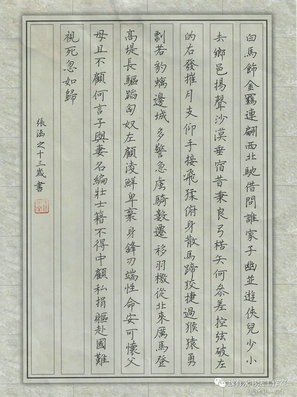 白馬飾金羈連翩西北馳借問誰家子幽並遊俠兒少小
去鄉邑揚聲沙漠垂宿昔秉良弓楛矢何參差控弦破左
的右發摧月支仰手接飛猱俯身散馬蹄狡捷過猴猿勇
剽若豹螭邊城多警急虜騎數遷移羽檄從北來厲馬登
高堤長驅蹈匈奴左顧淩鮮卑棄身鋒刃端性命安可懷父
母且不顧何言子與妻名編壯士籍不得中顧私捐軀赴國難
視死忽如歸
張涵之十三歲書